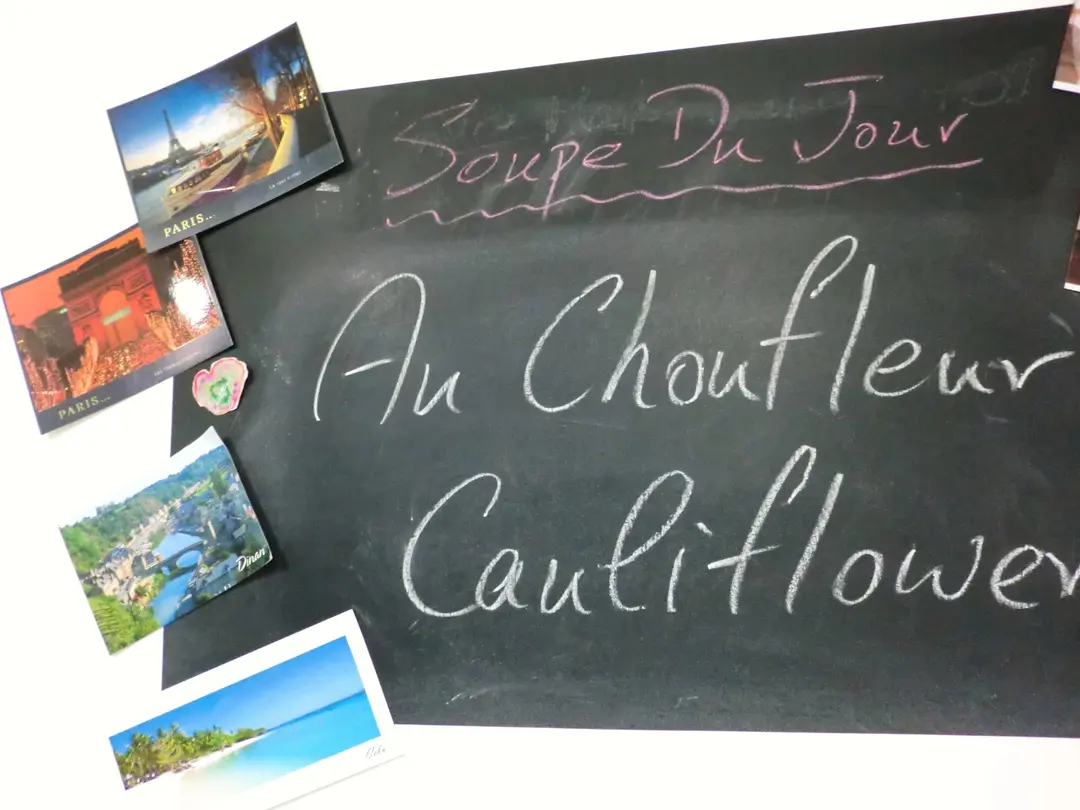 Soupe Du Jour
Au Choufleur
Cauliflower
PARIS...
PARIS...
Dinan